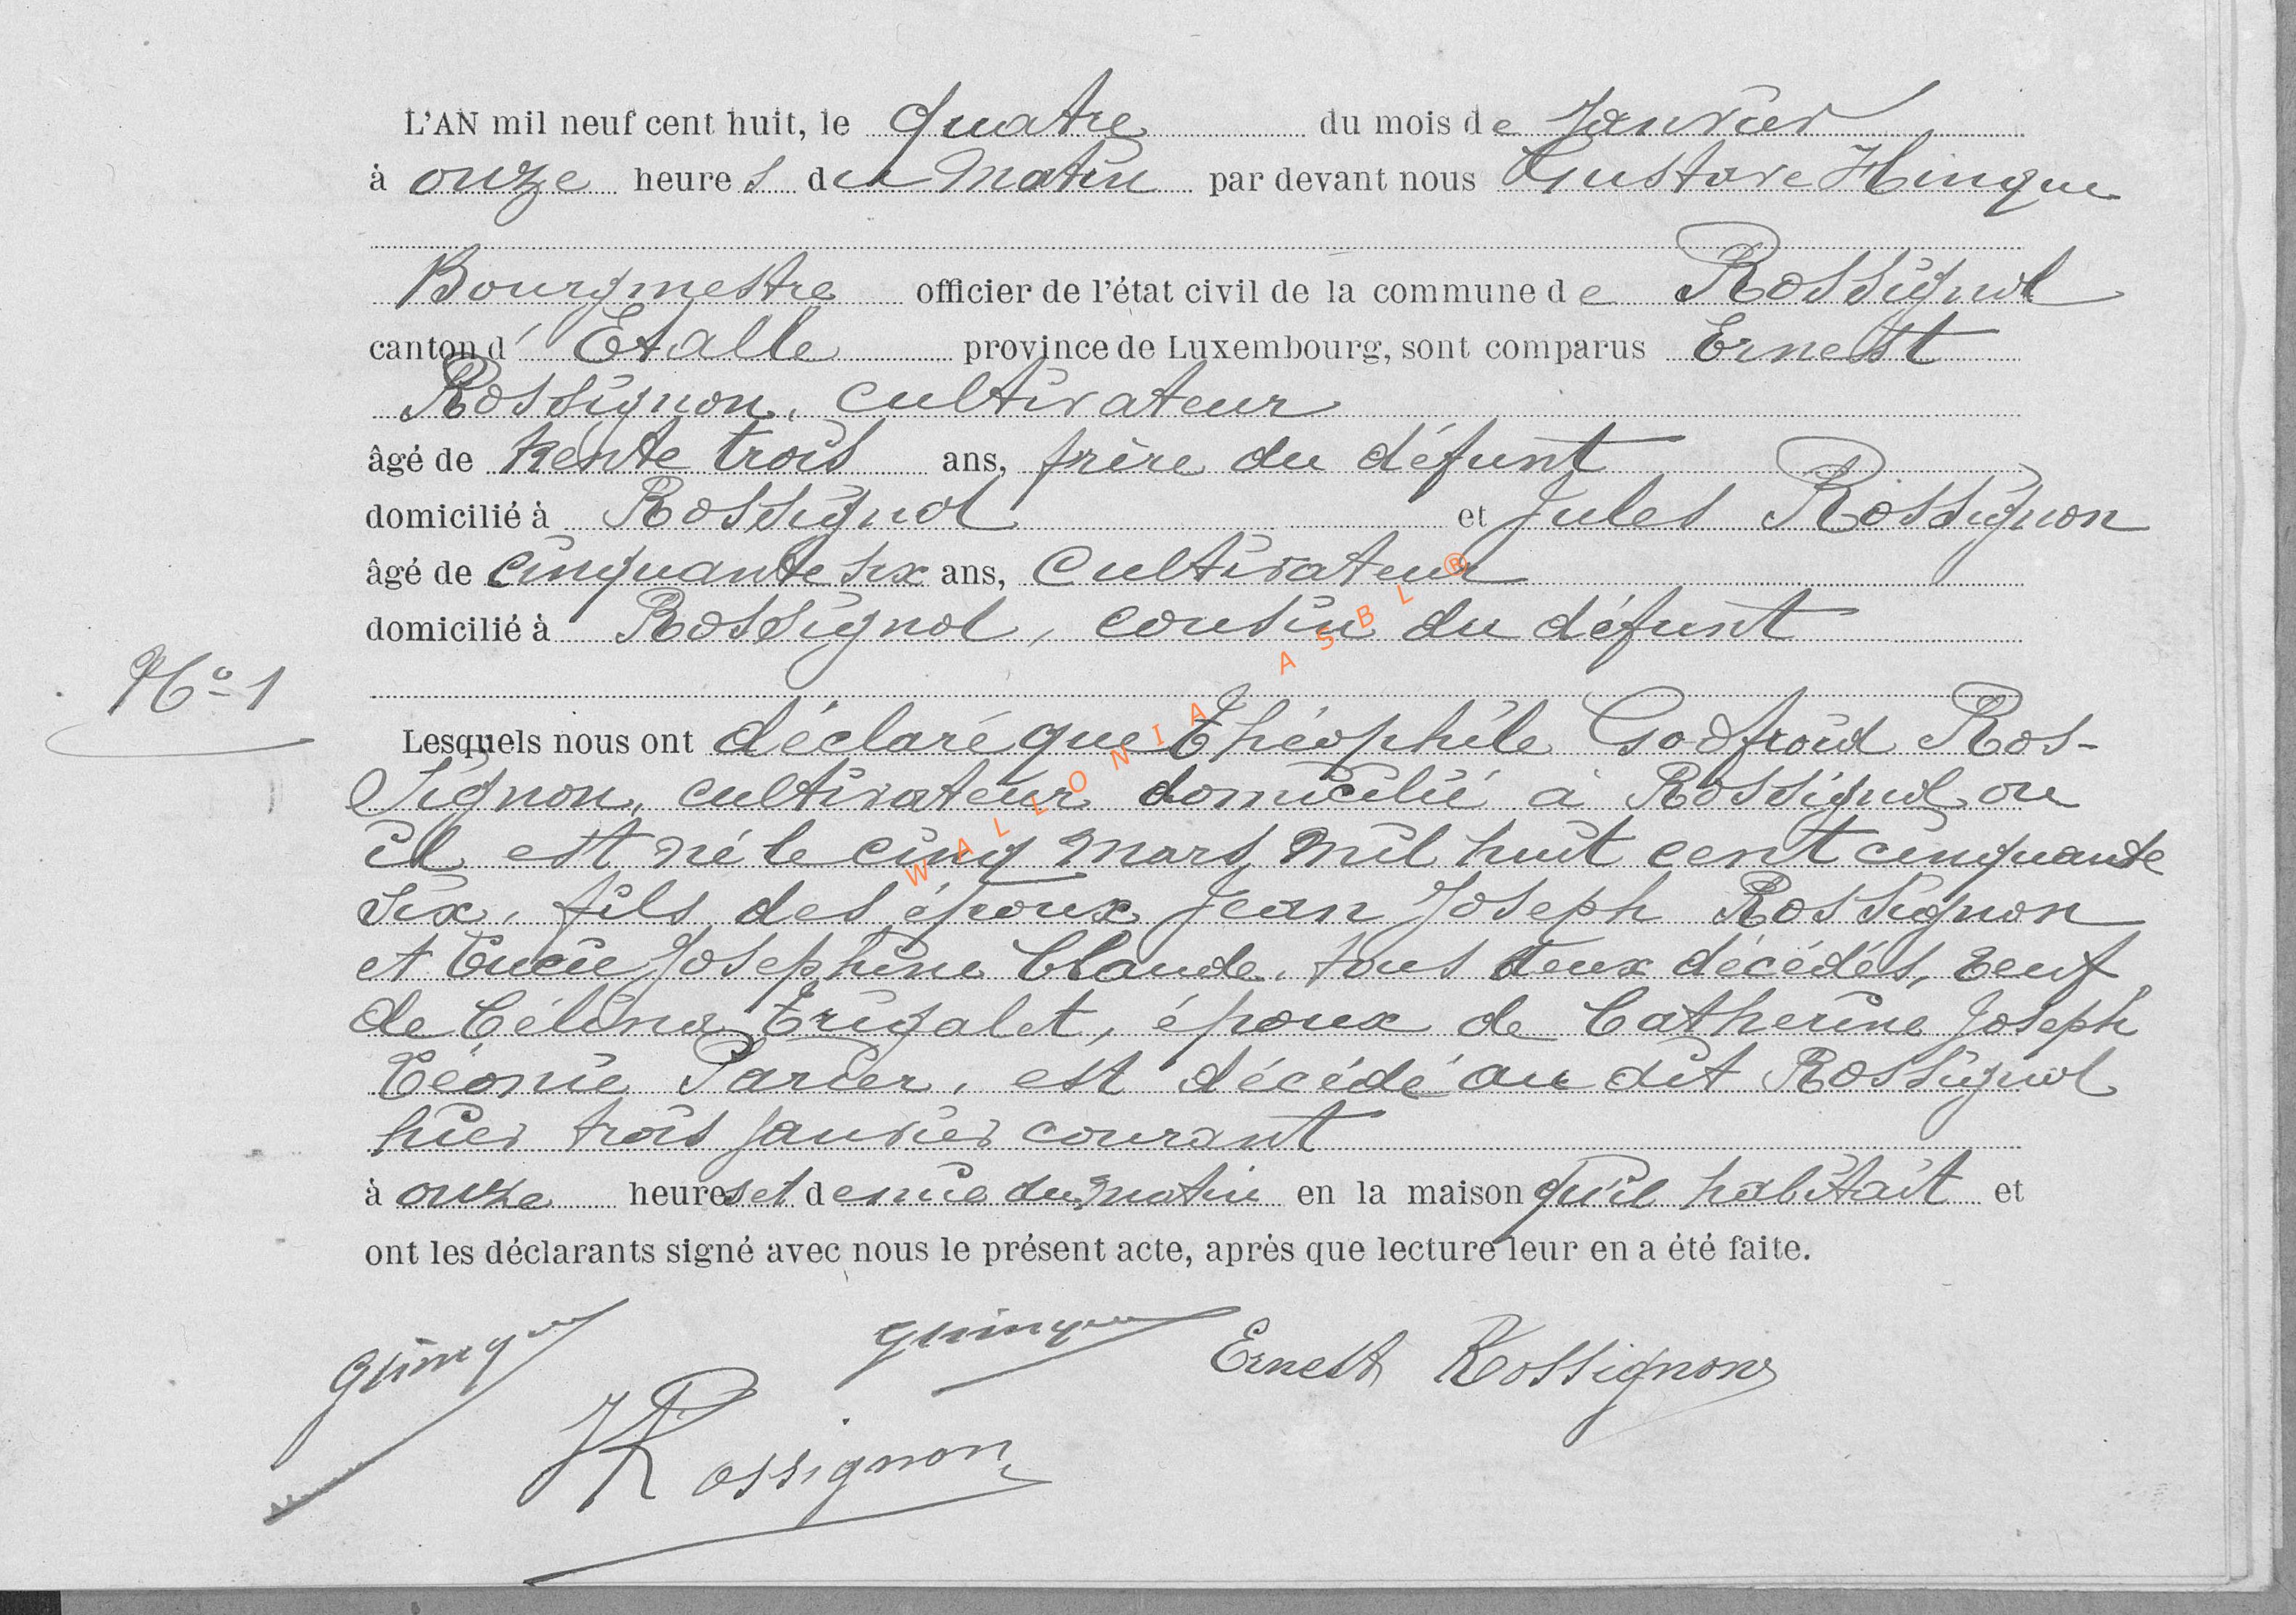 L'AN mil neuf cent huit, le quatre du mois de Janvier
à onze heures du matin par devant nous Gustave Hinque
Bourgmestre officier de l'état civil de la commune de Rossignol
canton d'Etalle province de Luxembourg, sont comparus Ernest
Rossignon, cultivateur
âgé de trente trois ans, frère du défunt
domicilié à Rossignol et Jules Rossignon
âgé de cinquante six ans, cultivateur
domicilié à Rossignol, cousin du défunt
No 1
Lesquels nous ont déclaré que Théophile Godfroid Ros-
signon, cultivateur domicilié à Rossignol ou
il est né le cinq mars mil huit cent cinquante
six, fils des époux Jean Joseph Rossignon
et Lucie Josephine Claude, tous deux décédés, veuf
de Célina Trigalet, époux de Catherine Joseph
Léonie Parier, est décédé au dit Rossignol
hier trois janvier courant
à onze heures et demie du matin en la maison qu'il habitait et
ont les déclarants signé avec nous le présent acte, après que lecture leur en a été faite.
GHinque GHinque Ernest Rossignon
JRossignon
WALLONIA ASBL ®